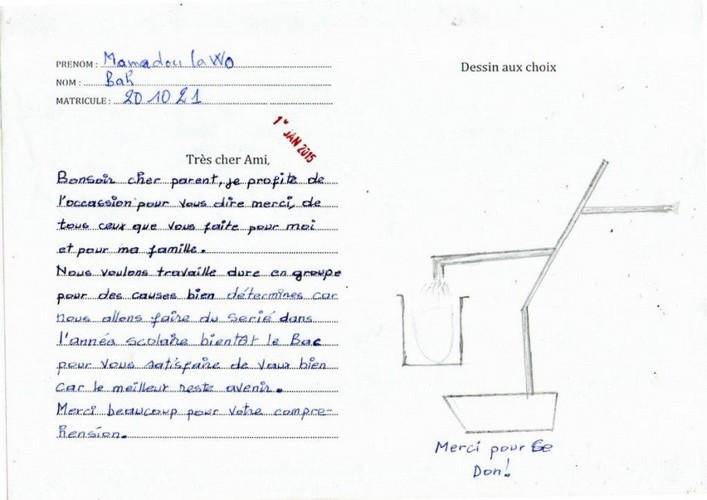 PRENOM : Mamadou laWo
NOM : Bah
MATRICULE : 201021
1er JAN 2015
Très cher Ami,
Bonsoir cher parent, je profite de
l'occassion pour vous dire merci, de
tous ceux que vous faite pour moi
et pour ma famille.
Nous voulons travaille dure en groupe
pour des causes bien détermines car
nous allons faire du serié dans
l'annéa scolaire bientôt le Bac
pour vous satisfaire de vaux bien
car le meilleur reste avenir.
Merci beaucoup pour votre compre-
hension.
Dessin aux choix
Merci pour ce
Don!